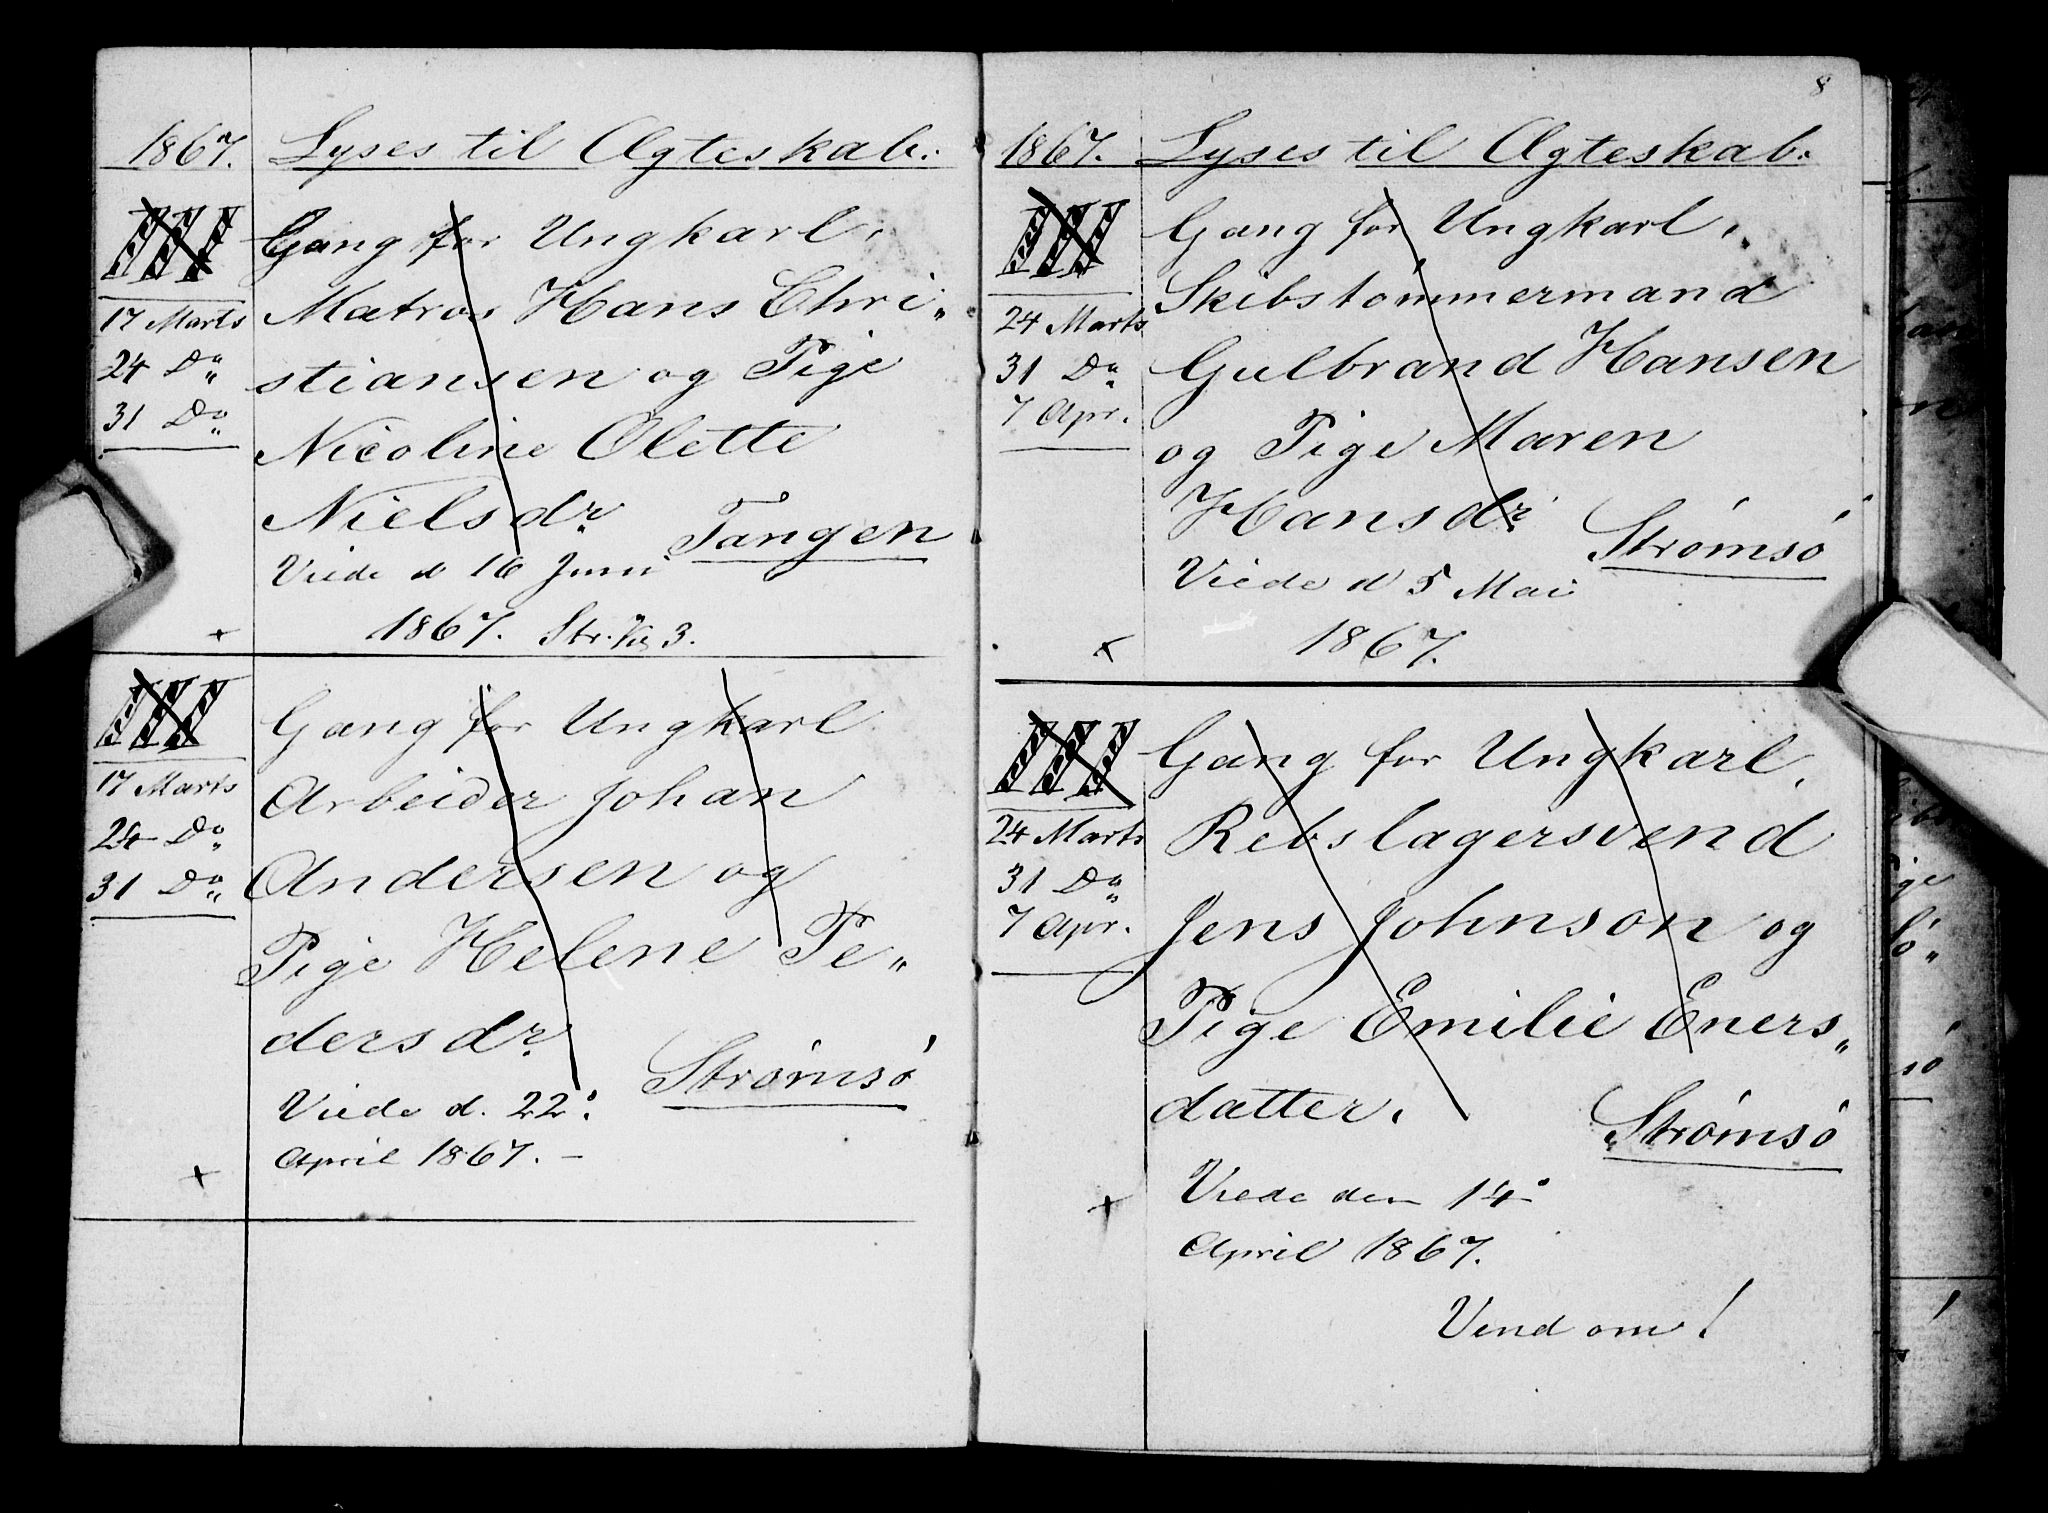 1867. Lyses til Ægteskab.
III Gang for Ungkarl,
17 Marts Matros Hans Chri„
24 Do stiansen og Pige
31 Do Nicoline Olette
Nielsdr. Tangen
Viede d 16 Juni
1867. Str. 3.
+
III Gang for Ungkarl
17 Marts Arbeider Johan
24 Do Andersen og
31 Do Pige Helene Pe„
dersdr. Strømsö
Viede d. 22.
April 1867. –
+
8
1867. Lyses til Ægteskab.
III Gang for Ungkarl,
24 Marts Skibstömmermand
31 Do Gulbrand Hansen
7 Apr. og Pige Maren
Hansdr. Strömsö
Viede d 5 Mai
1867.
+
III Gang for Ungkarl,
24 Marts Rebslagersvend
31 Do Jens Johnson og
7 Apr. Pige Emilie Eners„
datter. Strömsö
Viede den 14
April 1867.
+
Vend om!